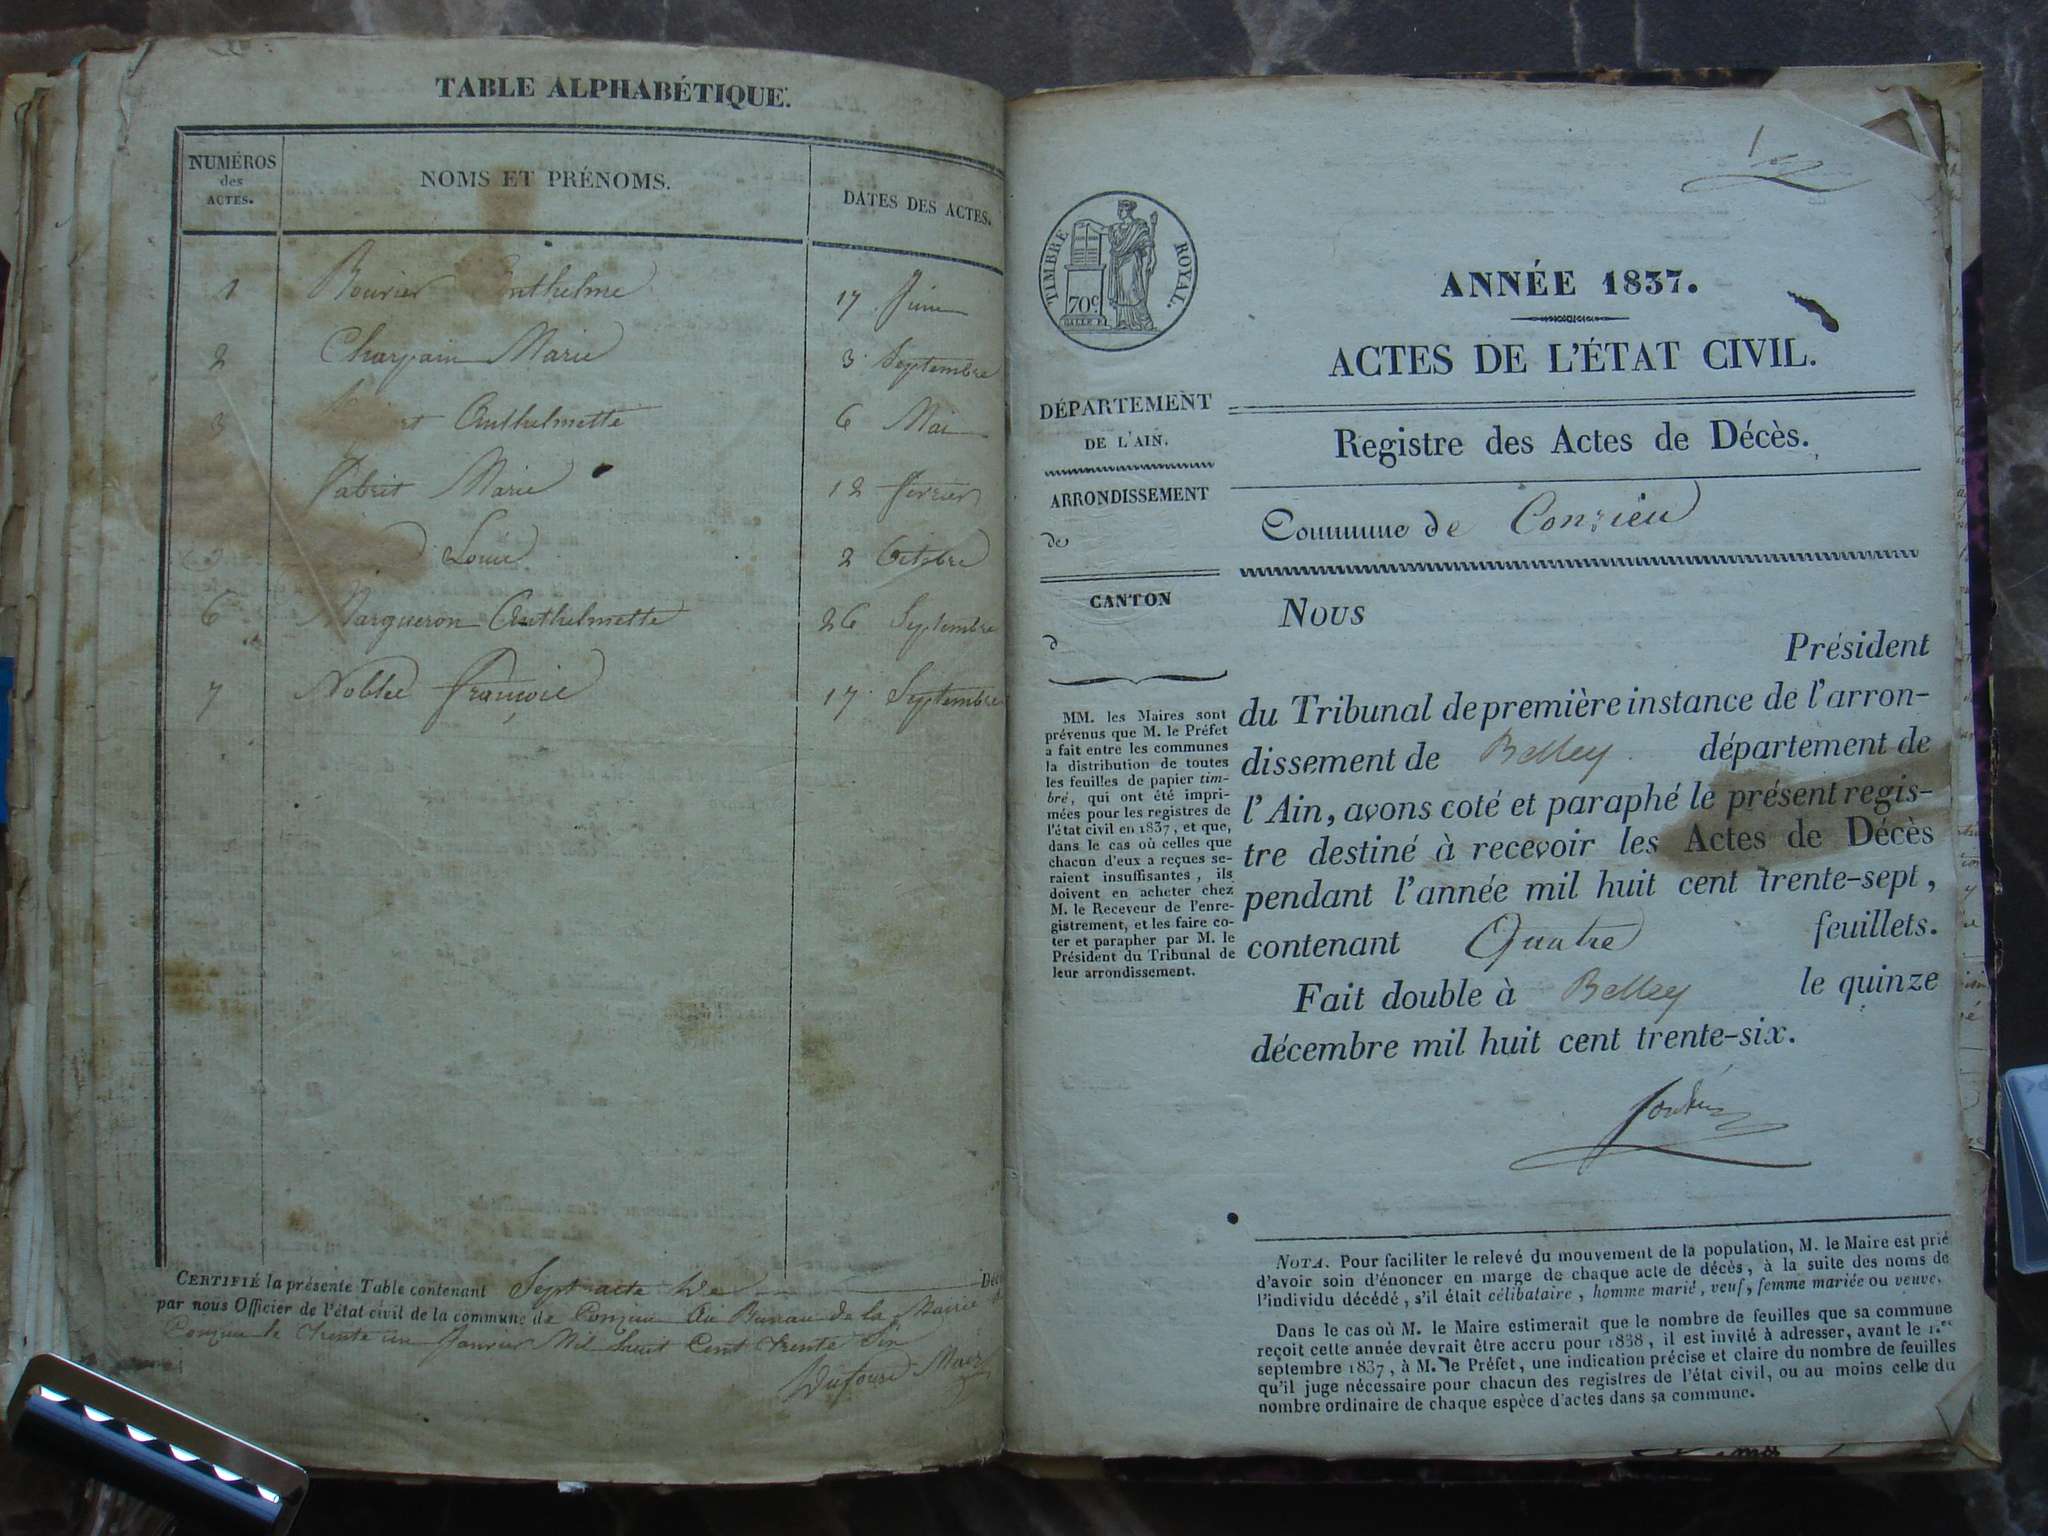 TABLE ALPHABÉTIQUE.
NUMÉROS
des
ACTES.
NOMS ET PRÉNOMS.
DATES DES ACTES.
1 Bouvier Anthelme 17 Juin
2 Charpain Marie 3 Septembre
3 Anthelmette 6 Mai
Fabrit Marie 12 février
Louis 2 Octobre
6 Margueron Anthelmette 26 Septembre
7 François 17 Septembre
CERTIFIÉ la présente Table contenant Sept acte De
par nous Officier de l'état civil de la commune de Conzieu Au Bureau de la Mairie
Conzieu le trente un Janvier Mil huit Cent trente
Dufour Maire
1
TIMBRE ROYAL.
70c
ANNÉE 1837.
ACTES DE L'ÉTAT CIVIL.
Registre des Actes de Décès.
Commune de Conzieu
DÉPARTEMENT
DE L'AIN.
ARRONDISSEMENT
de
CANTON
d
MM. les Maires sont
prévenus que M. le Préfet
a fait entre les communes
la distribution de toutes
les feuilles de papier tim-
bré, qui ont été impri-
mées pour les registres de
l'état civil en 1837, et que,
dans le cas où celles que
chacun d'eux a reçues se-
raient insuffisantes, ils
doivent en acheter chez
M. le Receveur de l'enre-
gistrement, et les faire co-
ter et parapher par M. le
Président du Tribunal de
leur arrondissement.
Nous
Président
du Tribunal de première instance de l'arron-
dissement de Belley département de
l'Ain, avons coté et paraphé le présent regis-
tre destiné à recevoir les Actes de Décès
pendant l'année mil huit cent trente-sept,
contenant Quatre feuillets.
Fait double à Belley le quinze
décembre mil huit cent trente-six.
NOTA. Pour faciliter le relevé du mouvement de la population, M. le Maire est prié
d'avoir soin d'énoncer en marge de chaque acte de décès, à la suite des noms de
l'individu décédé, s'il était célibataire, homme marié, veuf, femme mariée ou veuve.
Dans le cas où M. le Maire estimerait que le nombre de feuilles que sa commune
reçoit cette année devrait être accru pour 1838, il est invité à adresser, avant le 1.er
septembre 1837, à M. le Préfet, une indication précise et claire du nombre de feuilles
qu'il juge nécessaire pour chacun des registres de l'état civil, ou au moins celle du
nombre ordinaire de chaque espèce d'actes dans sa commune.